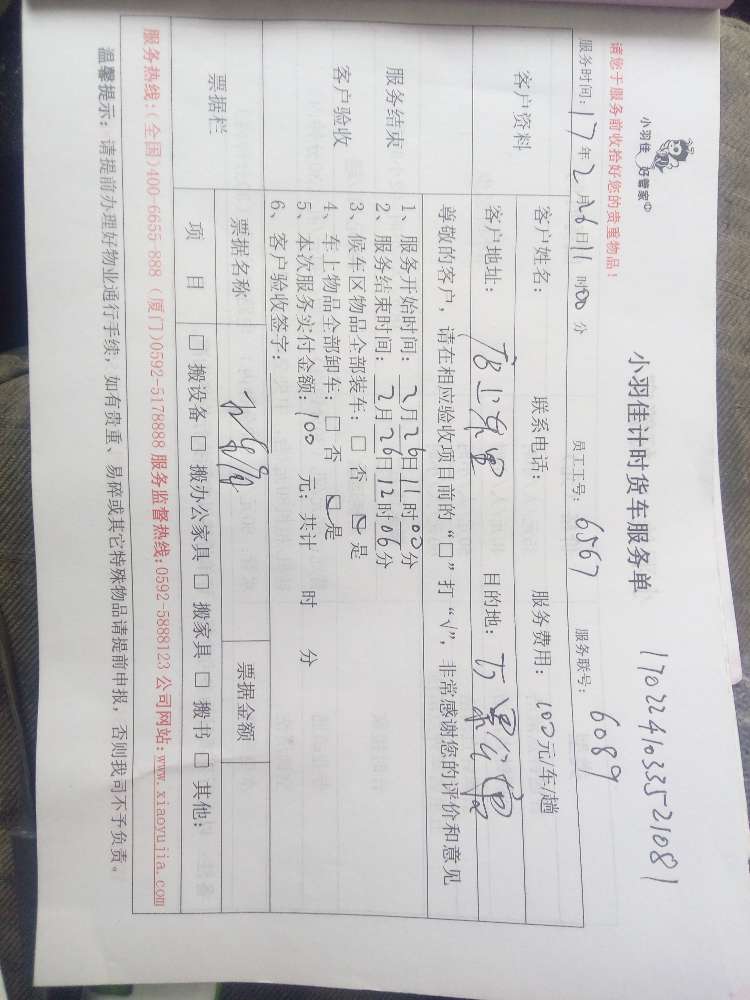 小羽佳 好管家
小羽佳计时货车服务单
1702241033521081
请您于服务前收拾好您的贵重物品！
服务时间：17年2月26日11时00分 员工工号：6567 服务联号：6089
客户资料
客户姓名： 联系电话： 服务费用：100元/车/趟
客户地址： 目的地：
尊敬的客户，请在相应验收项目前的“□”打“√”，非常感谢您的评价和意见
服务结束
客户验收
1、服务开始时间：2月26日11时00分
2、服务结束时间：2月26日12时06分
3、候车区物品全部装车：□ 否 ☑ 是
4、车上物品全部卸车：□ 否 ☑ 是
5、本次服务实付金额：100 元；共计 时 分
6、客户验收签字：
票据栏
票据名称 票据金额
项 目 □ 搬设备 □ 搬办公家具 □ 搬家具 □ 搬书 □ 其他：
服务热线：(全国)400-6655-888 (厦门)0592-5178888 服务监督热线：0592-5888123 公司网站：www.xiaoyujia.com
温馨提示：请提前办理好物业通行手续，如有贵重、易碎或其它特殊物品请提前申报，否则我司不予负责。